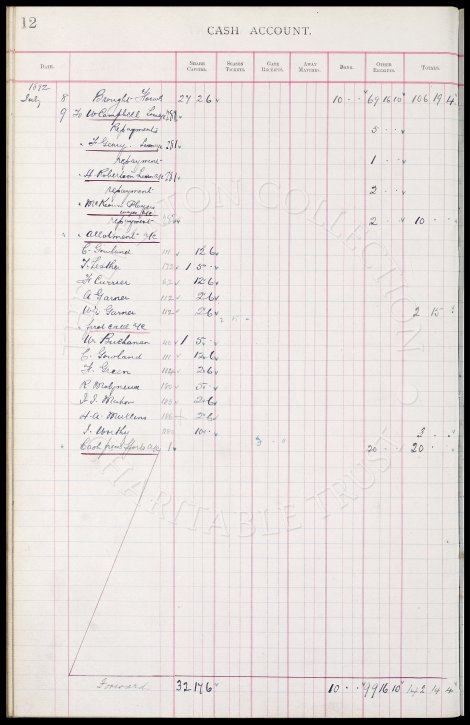 12
CASH ACCOUNT.
DATE. SHARE CAPITAL. SEASON TICKETS. GATE RECEIPTS. AWAY MATCHES. BANK. OTHER RECEIPTS. TOTALS.
1892
July 8 Brought Forwd 27 2 6 10 " " 69 16 10 106 19 4
9 To W Campbell Loan a/c
Repayments 5 " "
" F Geary
repayment 1 " "
" H. Robertson Loan a/c
repayment 2 " "
" McKeown Players
repayment 2 " " 10 " "
" Allotment a/c
C. Gowland 111 12 6
T. Leather 1 5 "
H Currier 12 6
A Garner 112 2 6
Wm Garner 112 2 6 2 15 "
" first call a/c
W. Buchanan 1 5 "
C. Gowland 111 12 6
H. Green 2 6
R Molyneux 5 "
J. J. Mahon 2 6
H. A. Mullins 2 6
J. Worthy 10 " 3 " "
" Cash from a/c 1 20 " " 20 " "
Forward 32 17 6 10 " " 99 16 10 142 14 4
COLLECTION
CHARITABLE TRUST